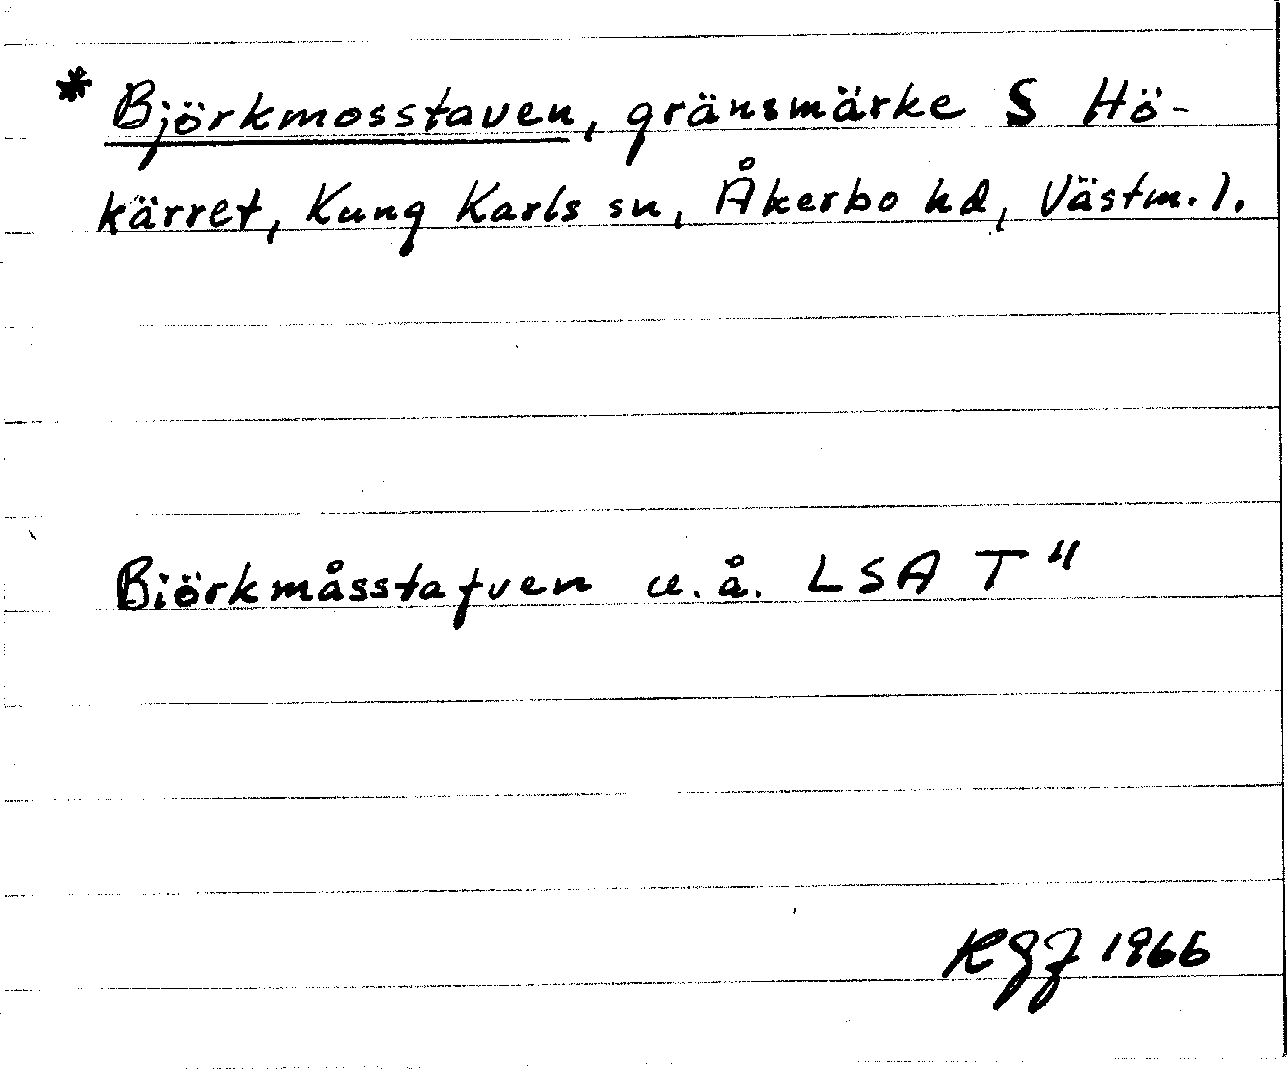 * Björkmosstaven, gränsmärke S Hö-
kärret, Kung Karls sn, Åkerbo hd, Västm. l.
Biörkmåsstafven u.å. LSA T"
KGJ 1966